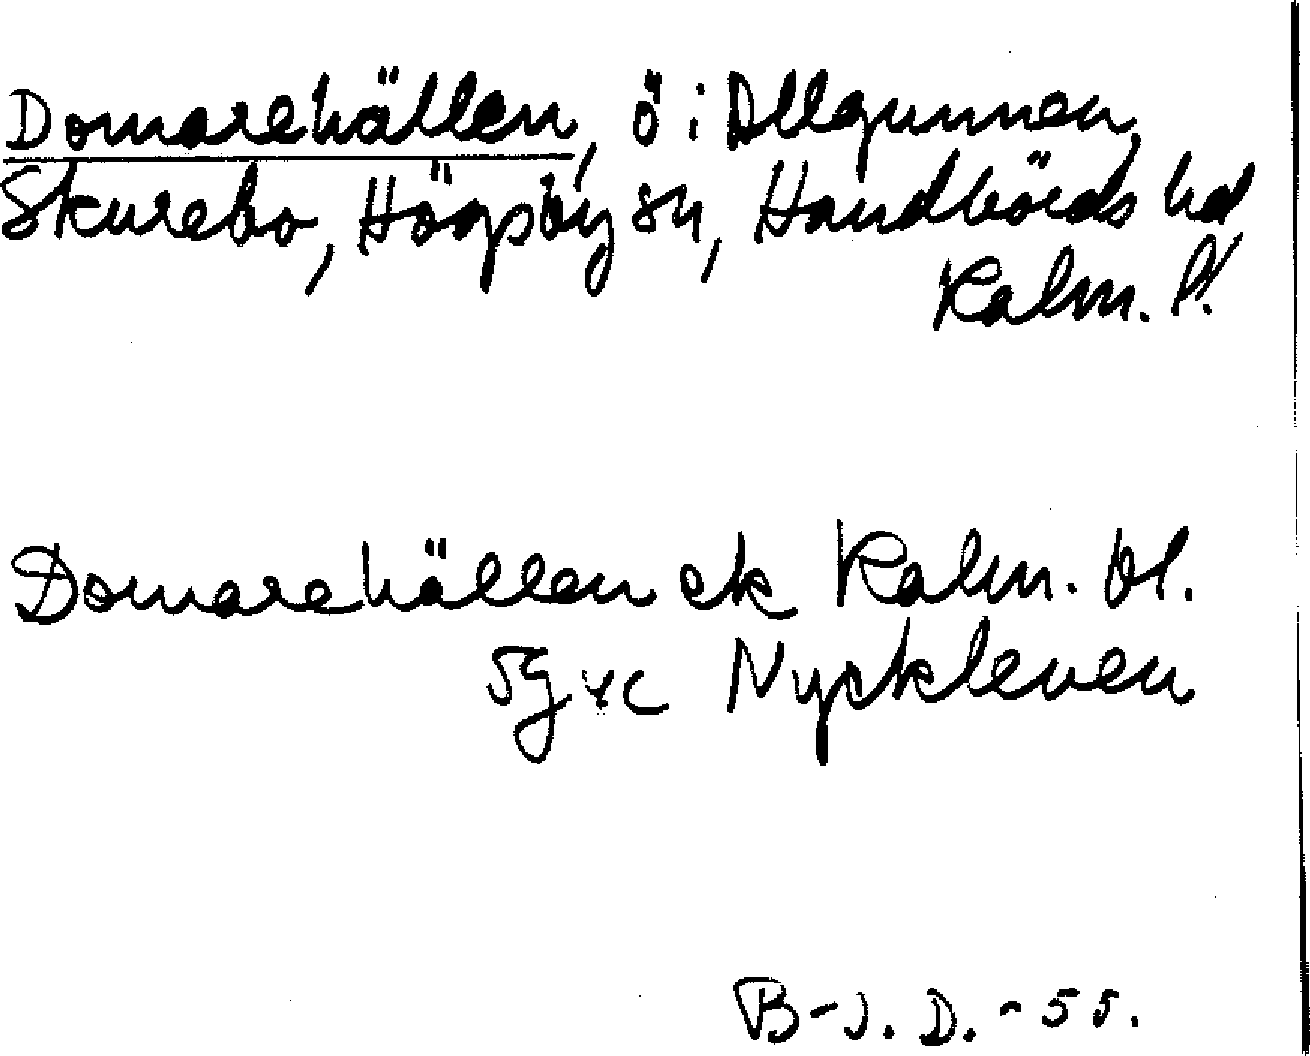 Domarehällen, ö i Allgunnen,
Skurebo, Högsby sn, Handbörds hd,
Kalm. l.
Domarehällen ek Kalm. bl.
5g vc Nyckleven
B-J. D. -55.